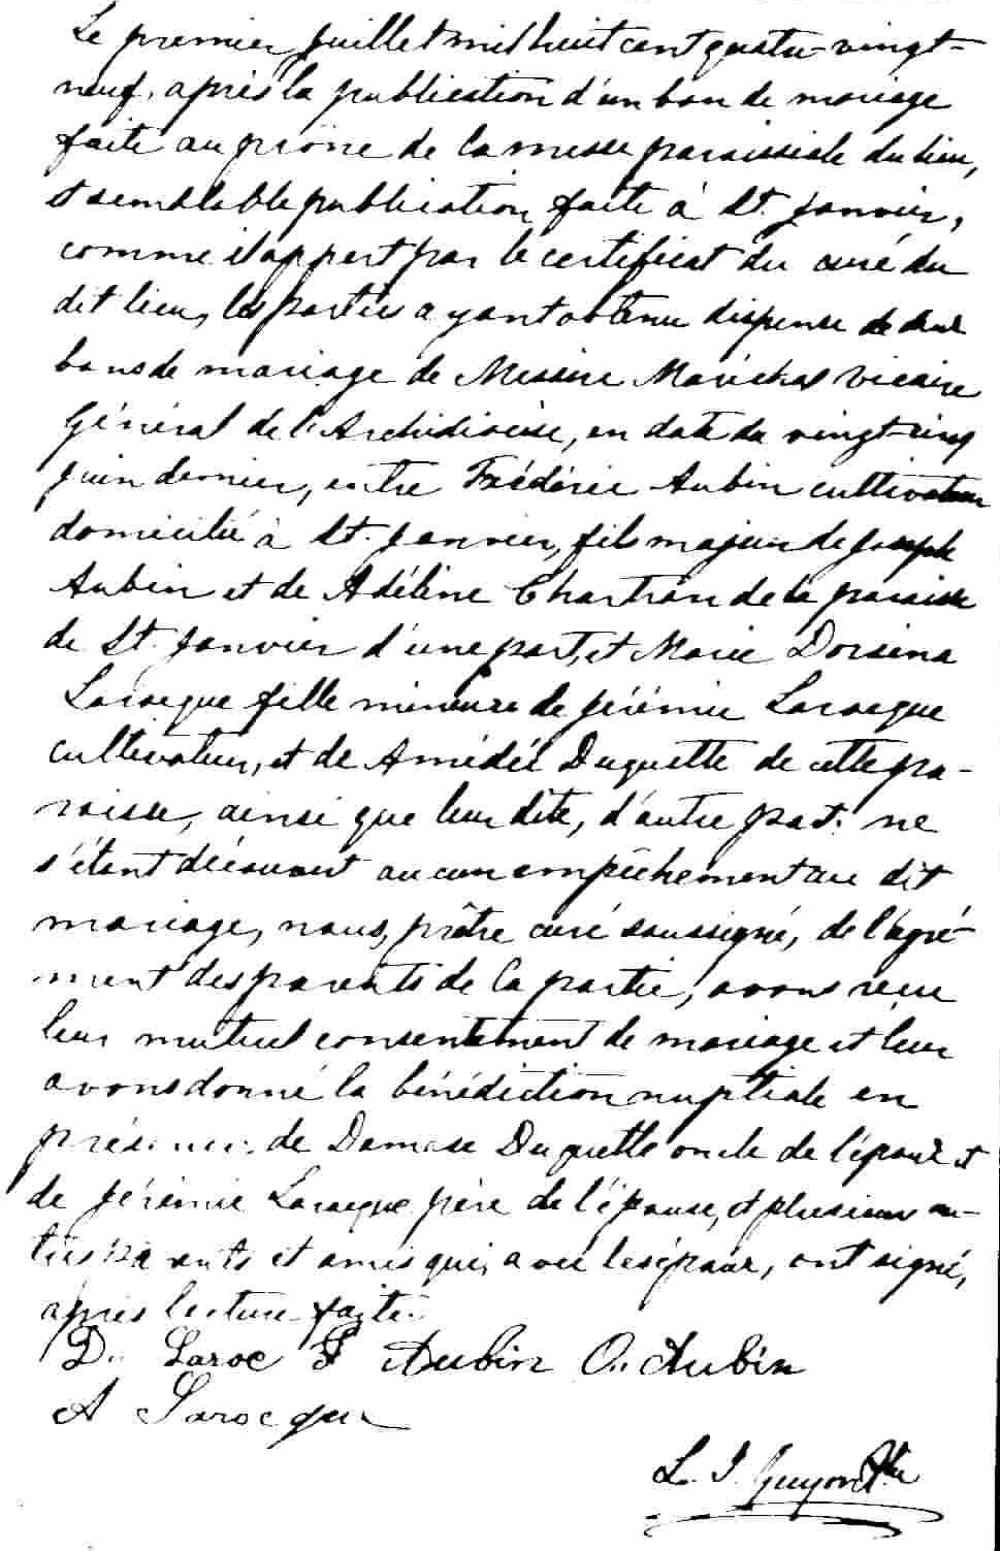 Le premier juillet mil huit cent quatre-vingt-
neuf, après la publication d'un ban de mariage
faite au prône de la messe paroissiale du lieu,
et semblable publication faite à St. Janvier,
comme il appert par le certificat du curé du
dit lieu, les parties ayant obtenu dispense de deux
bans de mariage de Messire Maréchal Vicaire
Général de l'Archidiocèse, en date du vingt-cinq
juin dernier, entre Frédéric Aubin cultivateur
domicilié à St. Janvier, fils majeur de Joseph
Aubin et de Adéline Chartran de la paroisse
de St. Janvier d'une part, et Marie Dorsina
Larocque fille mineure de Jérémie Larocque
cultivateur, et de Amédée Duquette de cette pa-
roisse, ainsi que leur dite, d'autre part: ne
s'étant découvert aucun empêchement au dit
mariage, nous, prêtre curé soussigné, de l'agré-
ment des parents de la partie, avons reçu
leur mutuel consentement de mariage et leur
avons donné la bénédiction nuptiale en
présence de Damase Duquette oncle de l'époux et
de Jérémie Larocque père de l'épouse, et plusieurs au-
tres parents et amis qui, avec les époux, ont signé,
après lecture faite.
D. Laroc F Aubin O. Aubin
A Larocque
L. J. Guyon Ptre